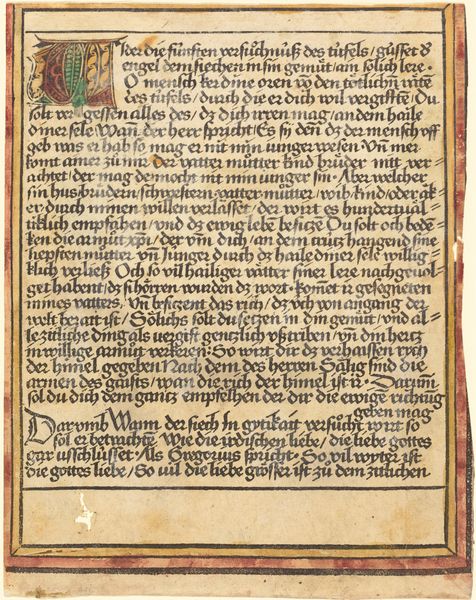 Wider die fünften versůchnuß des tüfels / güsset d̕
engel dem siechen in sin gemüt / ain solich lere ·
O mensch ker dine oren vō den tötlichn̄ räte
des tüfels / durch die er dich wil vergifftē / Du
solt vergessen alles des / dz dich irren mag / an dem haile
diner sele Wañ der herr spricht / Es sÿ deñ dz der mensch vff
geb was er hab so mag er nit min iunger wesen · Vn̄ mer
komt ainer zů mir der vatter můtter kind brüder nitt ver=
achtet / der mag dennocht nit min iunger sin · Aber welcher
sin hus / brůdern / schwestern vatter můtter / wib kind / oder äk=
er durch minen willen verlasset / der wirt es hundertual=
tiklich empfahen / vnd dz ewig lebē besicze Du solt och bedē=
ken die armůt xp̄i / der vm̄ dich / an dem crütz hangend sine
liepsten můtter vn̄ Junger durch dz haile diner sele willig=
klich verließ Och so vil hailiger vätter siner lere nachgeuol=
get habent / dz si hörren wurden dz wort · Komet ir gesegneten
mines vatters · Vn̄ besiczent das rich / dz vch von angang der
welt berait ist / Sölichs solt du setzen in din gemüt / vnd al=
le zitliche ding als vergift gentzlich vßtriben / vn̄ din hertz
in willige armůt verkeren · So wirt dir dz verhaissen rych
der himel gegeben Nach dem des herren Sälig sind die
armen des gaists / wan die rich der himel ist ir · Darum̄
sol du dich dem gantz empfelhen der dir die ewige richtūg
geben mag
Dar vmb Wann der siech In gytikait versücht wirt so
sol er betrachtē Wie die irdischen liebe / die liebe gottes
gar vsschlüsset · Als Gregorius spricht · So vil wyter ist
die gottes liebe / So vil die liebe grösser ist zů dem zitlichen